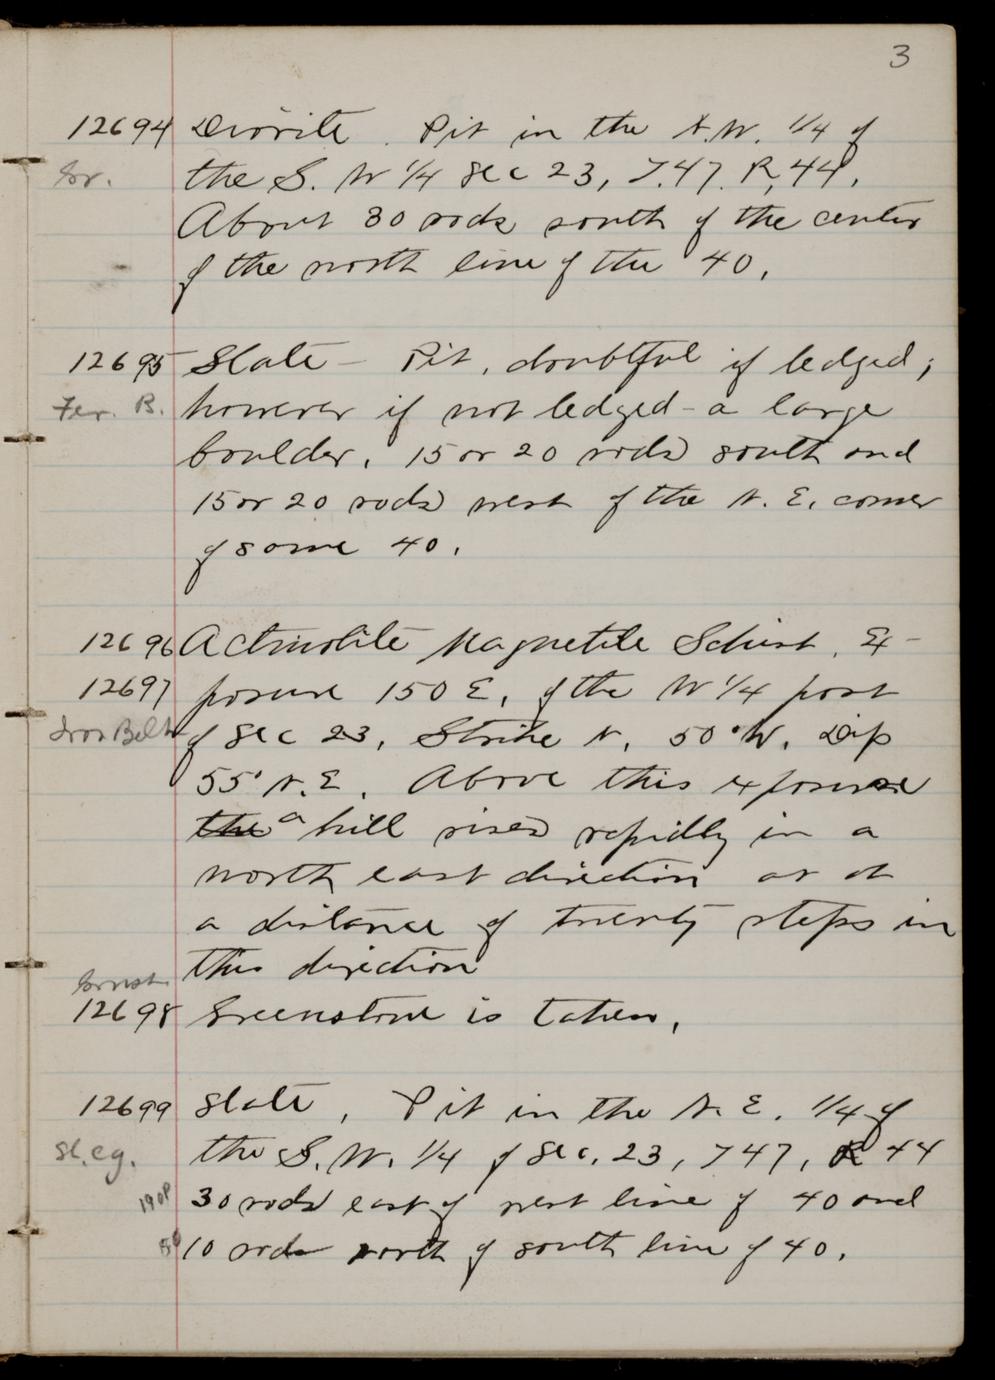 3
12694 Diorite. Pit in the N.W. 1/4 of
Gr. the S. W 1/4 Sec 23, T.47. R.44.
About 30 rods south of the center
of the north line of the 40.
12695 Slate - Pit, doubtful if ledged;
Fer. B. however if not ledged - a large
boulder. 15 or 20 rods south and
15 or 20 rods west of the N. E. corner
of same 40.
12696 Actinolite Magnetite Schist. Ex-
12697 posure 150 E. of the W 1/4 post
Iron Belt of Sec 23. Strike N. 50° W. Dip
55° N.E. Above this exposure
the a hill rises rapidly in a
north east direction at at
a distance of twenty steps in
this direction
12698 Greenstone is taken.
12699 Slate. Pit in the N. E. 1/4 of
Sl. cg. the S.W. 1/4 of Sec. 23, T 47, R 44
30 rods east of west line of 40 and
10 rods north of south line of 40.